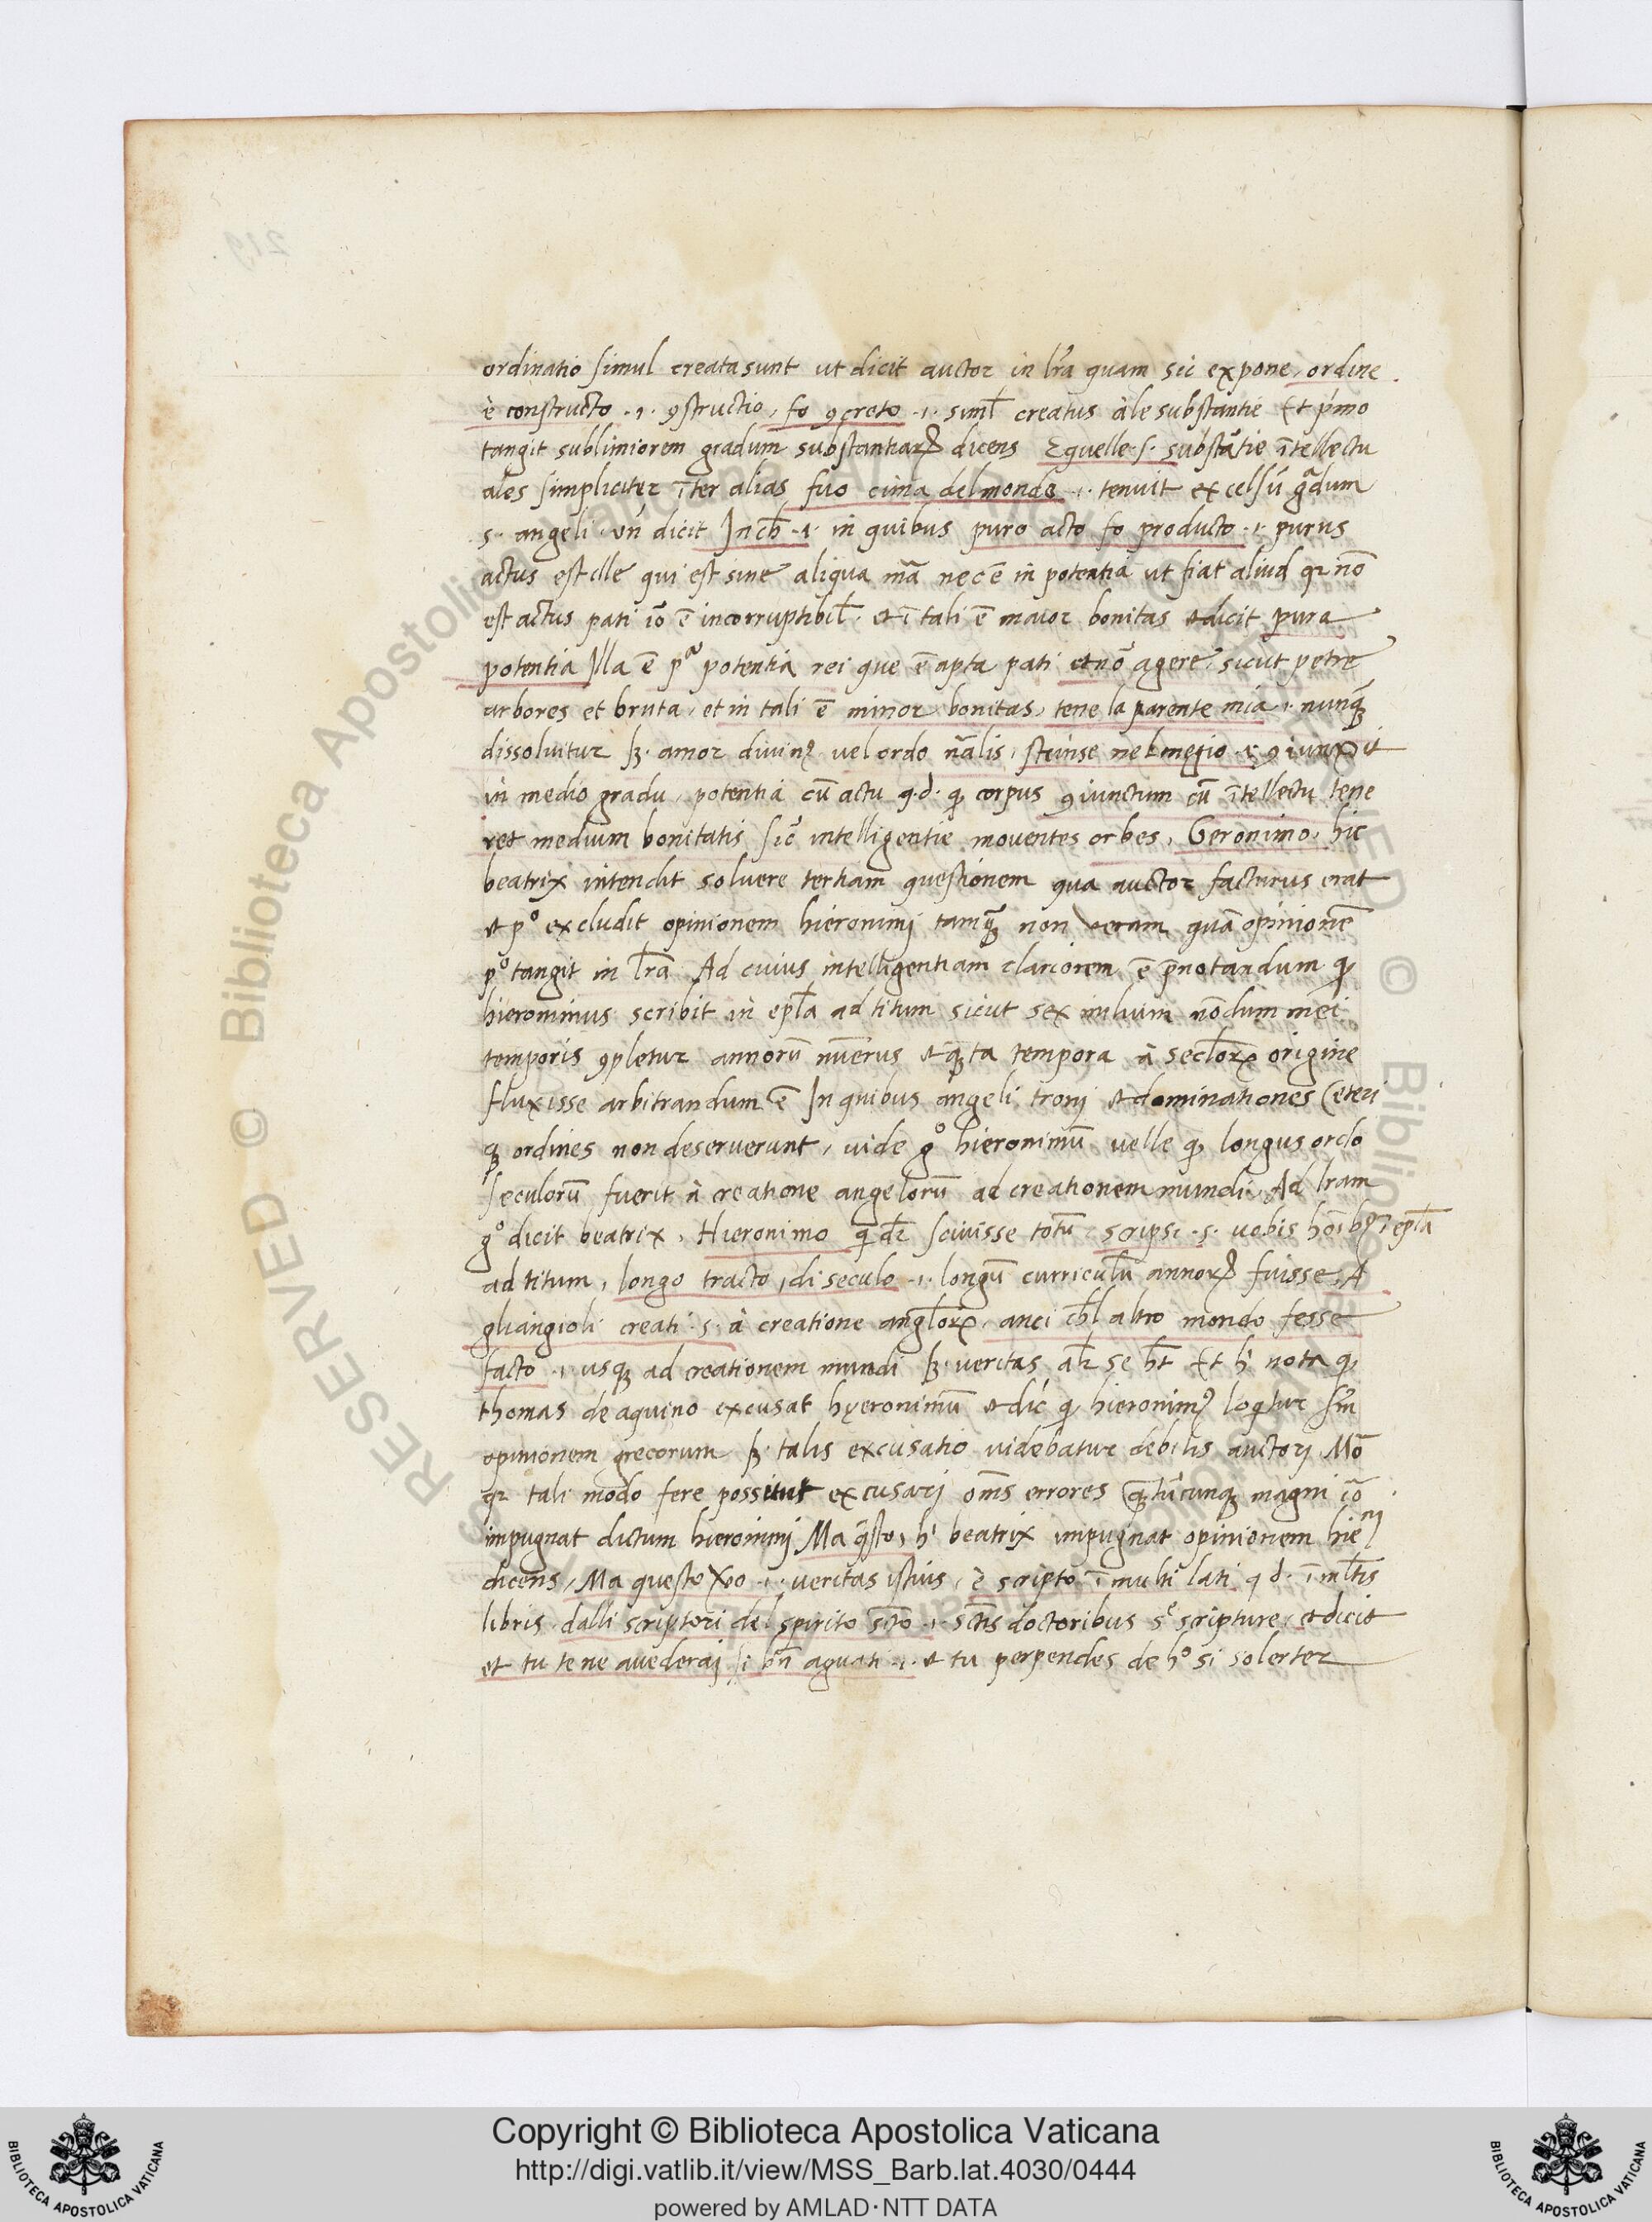 ordinatio simul creata sunt ut dicit auctor in lr̃a quam sic expone, ordine
è constructo .i. ꝯstructio, fo ꝯcreto .i. siml̃ creatus àle substantie Et p̃mo
tangit sublimiorem gradum substantiaꝝ dicens E quelle .s. substãtie ĩtellectu
ales simpliciter ĩter alias fuo cima del mondo .i. tenuit excelsũ gr̃dum
s. angeli. uñ dicit In ch̃ .i. in quibus puro acto fo producto .i. purus
actus est ille qui est sine aliqua mã nec ẽ in potentia ut fiat aliud qr nõ
est actus pati iõ ẽ incorruptibil̃. et ĩ tali ẽ maior bonitas et dicit pura
potentia Illa ẽ pᵃ potentia rei que ẽ apta pati et nõ agere, sicut petre
arbores et bruta, et in tali ẽ minor bonitas, tene la parente mia .i. nunqꝫ
dissoluitur sꝫ. amor diuinꝰ uel ordo nãlis, strinse nel megio .i. ꝯiunxit
in medio gradu, potentia cũ actu q.d. ꝙ corpus ꝯiunctum cũ ĩtellectu tene
ret medium bonitatis sic̃ intelligentie mouentes orbes, Geronimo, hic
beatrix intendit soluere tertiam questionem qua auctor facturus erat
et pº excludit opinionem hieronimi tamqꝫ non ueram quã opinionẽ
pº tangit in lr̃a Ad cuius intelligentiam clariorem ẽ p̃notandum ꝙ
hieronimus scribit in epl̃a ad titum sicut sex milium nõdum mei
temporis ꝯpletur annorũ nũerus et qꝫta tempora à secl̃oꝝ origine
fluxisse arbitrandum ẽ In quibus angeli troni et dominationes Ceteri
qꝫ ordines non deseruerunt, uide gº hieronimũ uelle ꝙ longus ordo
seculorũ fuerit à creatione angelorũ ad creationem mundi, Ad lram
gº dicit beatrix, Hieronimo q̃ dr̃ sciuisse totũ, scripse .s. uobis hõibꝰ ĩ epl̃a
ad titum, longo tracto, di seculo .i. longũ curriculũ annoꝝ fuisse, A
gliangioli creati .s. à creatione angl̃oꝝ, anci ch̃l altro mondo fesse
facto .i. usqꝫ ad creationem mundi sꝫ. ueritas alr̃ se h̃t Et hⁱ nota ꝙ
thomas de aquino excusat hyeronimũ et dic̃ ꝙ hieronimꝰ loqtur sm̃
opinionem grecorum sꝫ. talis excusatio uidebatur debilis auctori Mõ
qr tali modo fere possitut excusari oms̃ errores qꝫtũcunqꝫ magni iõ
impugnat dictum hieronimi Ma q̃sto, hⁱ beatrix impugnat opinionem hieⁿⁱ
dicens, Ma questo Vero .i. ueritas istius, è scripto ĩ multi lati q d. ĩ ml̃tis
libris. dalli scriptori del spirito sc̃to .i. sc̃tis doctoribus sᵉ scripture, et dicit
et tu te ne auederai si bñ aguati .i. et tu perpendes de hº si solerter
Copyright © Biblioteca Apostolica Vaticana
http://digi.vatlib.it/view/MSS_Barb.lat.4030/0444
powered by AMLAD·NTT DATA